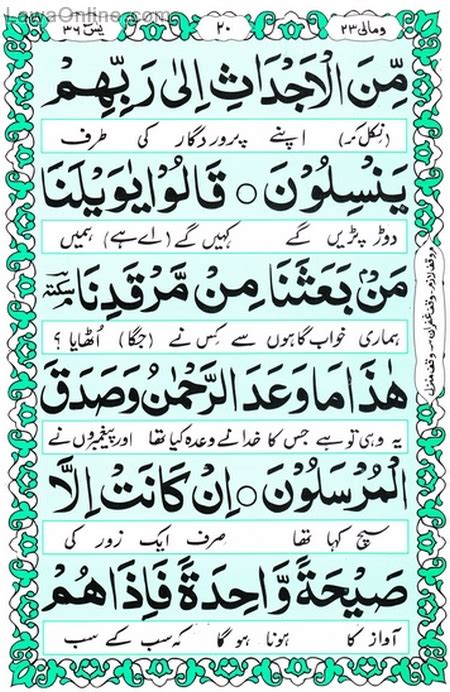 LawaOnline.com
یٰسٓ ۳۶
۲۰
ومالی ۲۳
مِّنَ الْاَجْدَاثِ اِلٰی رَبِّهِمْ
(نکل کر) اپنے پروردگار کی طرف
یَنْسِلُوْنَ ○ قَالُوْا یٰوَیْلَنَا
دوڑ پڑیں گے کہیں گے (اے ہے) ہمیں
مَنْۢ بَعَثَنَا مِنْ مَّرْقَدِنَا سکتہ
ہماری خواب گاہوں سے کِس نے (جگا) اُٹھایا ؟
هٰذَا مَا وَعَدَ الرَّحْمٰنُ وَصَدَقَ
یہ وہی تو ہے جس کا خدا نے وعدہ کیا تھا اور پیغمبروں نے
الْمُرْسَلُوْنَ ○ اِنْ کَانَتْ اِلَّا
سچ کہا تھا صِرف ایک زور کی
صَیْحَةً وَّاحِدَةً فَاِذَا هُمْ
آواز کا ہونا ہو گا کہ سب کے سب